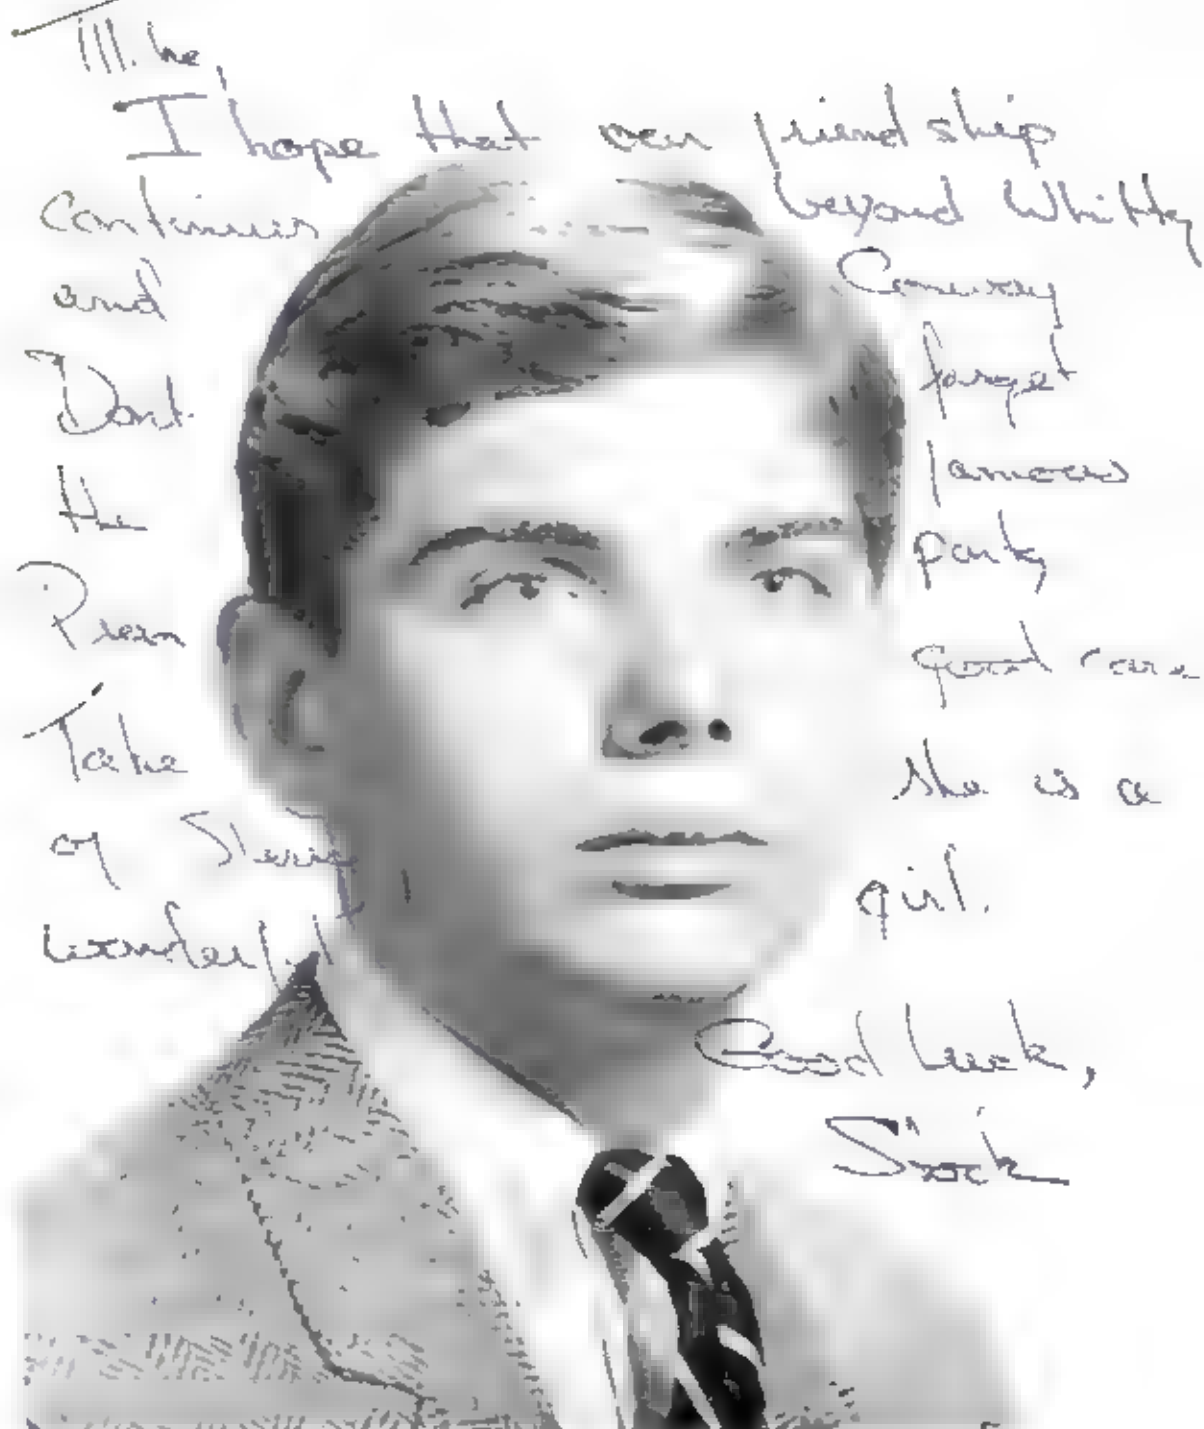 I hope that our friendship
continues beyond Whitty
and
Dont forget
the famous
party
Take good care
of she is a
wonderful girl.
Good Luck,